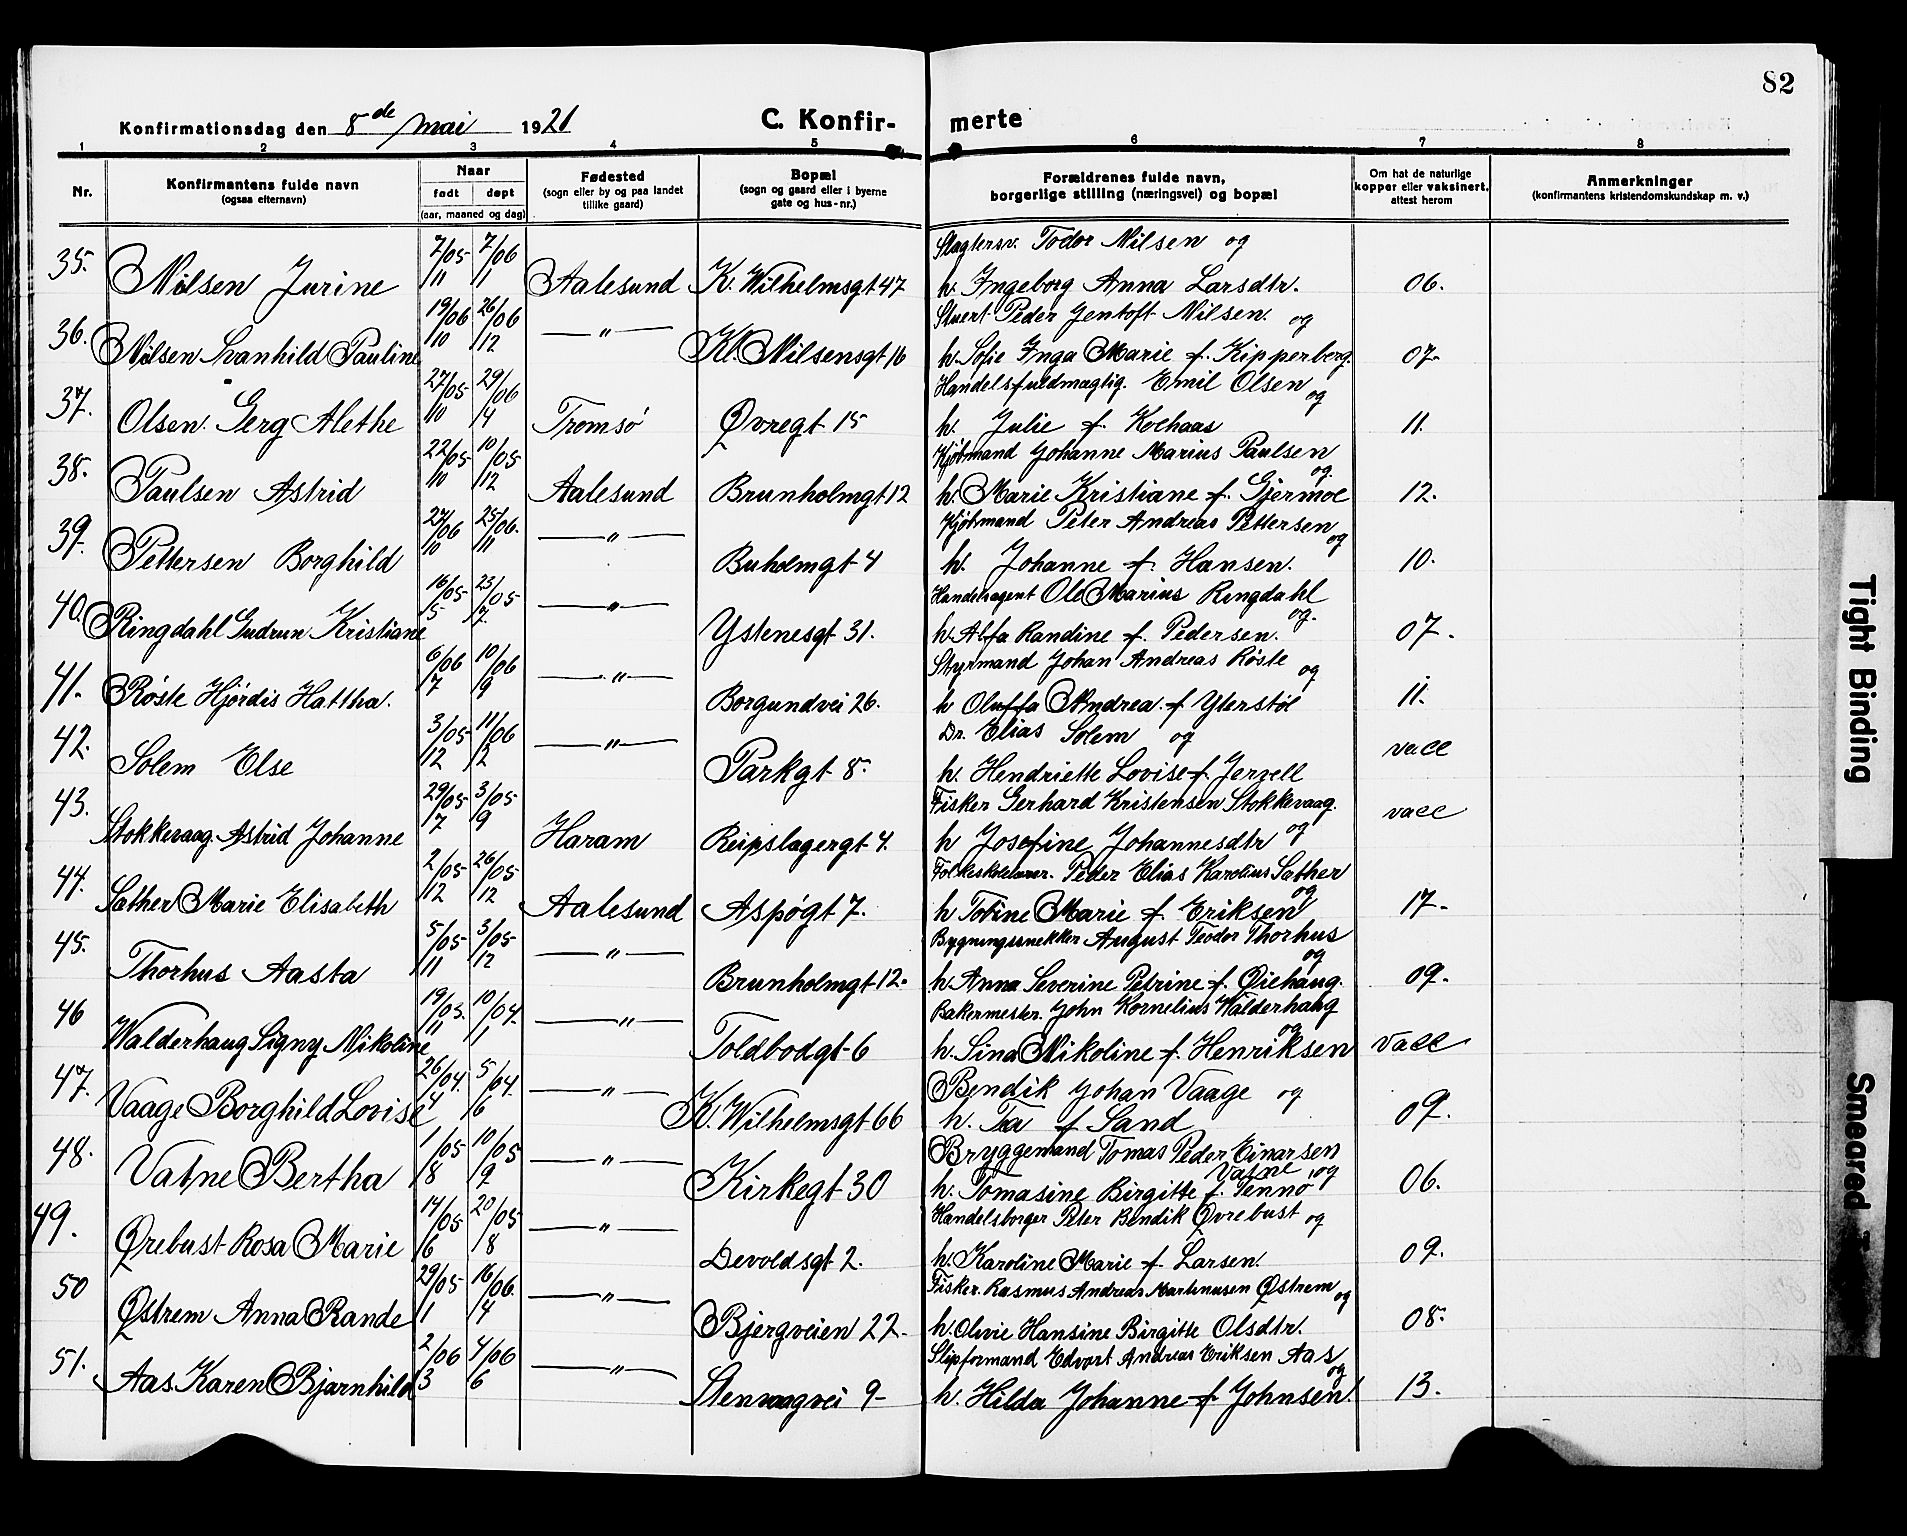 82
Konfirmationsdag den 8de mai 1921
C. Konfirmerte
1 2 3 4 5 6 7 8
Nr.
Konfirmantens fulde navn
(ogsaa efternavn)
Naar
født døpt
(aar, maaned og dag)
Fødested
(sogn eller by og paa landet
tillike gaard)
Bopæl
(sogn og gaard eller i byerne
gate og hus-nr.)
Forældrenes fulde navn,
borgerlige stilling (næringsvei) og bopæl
Om hat de naturlige
kopper eller vaksinert,
attest herom
Anmerkninger
(konfirmantens kristendomskundskap m. v.)
35. Nilsen Jurine 7/11 05 7/1 06 Aalesund K. Wilhelmsgt 47 Slagtersv. Todor Nilsen og
h. Ingeborg Anna Larsdtr. 06.
36. Nilsen Svanhild Pauline 19/10 06 26/12 06 —„— Kl. Nilsensgt 16 Stuert Peder Jentoft Nilsen og
h. Sofie Inga Marie f. Kipperberg. 07.
37. Olsen Gerg Alethe 27/10 05 29/4 06 Tromsø Øvregt 15 Handelsfuldmægtig. Emil Olsen og
h. Julie f. Kochaas 11.
38. Paulsen Astrid 22/10 05 10/12 05 Aalesund Brunholmgt 12 Kjøbmand Johanne Marius Paulsen og
h. Marie Kristiane f. Gjermoe 12.
39. Pettersen Borghild 27/10 06 25/11 06. —„— Buholmgt 4 Kjøbmand Peter Andreas Pettersen og
h. Johanne f. Hansen. 10.
40. Ringdahl Gudrun Kristiane 16/5 05 23/7 05 —„— Ystenesgt 31. Handelsagent Ole Marius Ringdahl og.
h. Alfa Randine f. Pedersen. 07.
41. Røste Hjørdis Hattha. 6/7 06 10/9 06 —„— Borgundvei 26. Styrmand Johan Andreas Røste og
h Oluffa Andrea f Yterstøl 11.
42. Solem Else 3/12 05 11/2 06 —„— Parkgt 8. Dr. Elias Solem og
h. Hendriette Lovise f. Jervell vacc
43. Stokkevaag Astrid Johanne 29/7 05 3/9 05 Haram Reipslagergt 4. Fisker Gerhard Kristensen Stokkevaag. og
h Josefine Johannesdtr vacc
44. Sæther Marie Elisabeth 2/12 05 26/12 05 Aalesund Aspøgt 7. Folkeskolelærer. Peder Elias Karolius Sæther og
h Tovine Marie f. Eriksen 17.
45. Thorhus Aasta 5/11 05 3/12 05 —„— Brunholmgt 12. Bygningssnekker August Teodor Thorhus og
h Anna Severine Petrine f. Øiehaug. 09.
46 Walderhaug Signy Nikoline 19/11 03. 10/1 04. —„— Toldbodgt 6 Bakermester. John Kornelius Walderhaug og
h. Sina Nikoline f. Henriksen vacc
47. Vaage Borghild Lovise 26/4 04. 5/6 04. —„— K. Wilhelmsgt 66 Bendik Johan Vaage og
h. Tea f Sand 09.
48. Vatne Bertha 1/8 05 10/9 05 —„— Kirkegt 30 Bryggemand Tomas Peder Einarsen Vatne, og
h. Tomasine Birgitte f. Tennø 06.
49. Ørebust Rosa Marie 14/6 05 20/8 05 —„— Devoldsgt 2. Handelsborger Peter Bendik Øvrebust og
h. Karoline Marie f. Larsen. 09.
50 Østrem Anna Rande 29/1 05 16/4 06. —„— Bjergveien 22. Fisker Rasmus Andreas Martinusen Østrem og
h. Olivie Hansine Birgitte Olsdtr. 08.
51. Aas. Karen Bjarnhild 2/3 06 4/6 06 —„— Stenvaagvei 9 Slipformand Edvart Andreas Eriksen Aas og
h. Hilda Johanne f. Johnsen. 13.
Tight Binding
Smeared